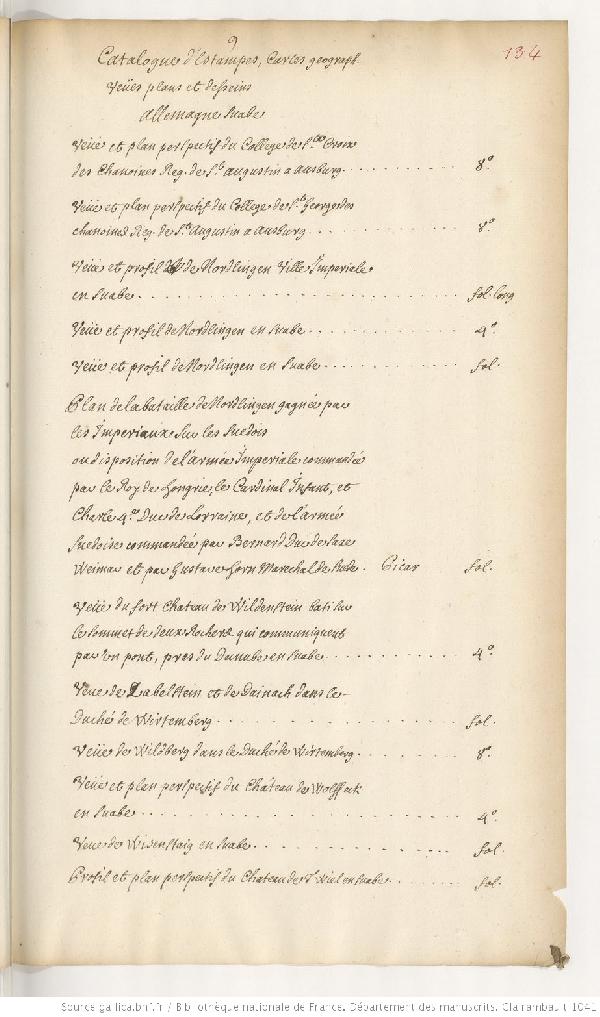 9
134
Catalogue d'Estampes, Cartes geograph.
Veües plans et desseins
Allemagne Suabe
Veüe et plan perspectif du College de Ste Croix
des Chanoines Reg. de St Augustin a Ausburg. 8º
Veüe et plan perspectif du College de St Georges des
chanoines Reg. de St Augustin a Ausburg 8º
Veüe et profil de Nordlingen Ville Imperiale
en Suabe. fol. long
Veüe et profil de Nordlingen en Suabe 4º
Veüe et profil de Nordlingen en Suabe fol.
Plan de la bataille de Nordlingen gagnée par
les Imperiaux sur les Suedois
ou disposition de l'armée Imperiale commandée
par le Roy de Hongrie, le Cardinal Infant, et
Charle 4e Duc de Lorraine, et de l'armée
Suedoise commandée par Bernard Duc de Saxe
Weimar et par Gustave Horn Marechal de Suede. Picar fol.
Veüe du fort Chateau de Wildenstein bati sur
le sommet de deux Rochers qui communiquent
par un pont, pres du Danube en Suabe 4º
Veue de Zabelstein et de Dainach dans le
Duché de Wirtemberg fol.
Veüe de Wildberg dans le Duché de Wirtemberg 8º
Veüe et plan perspectif du Château de Wolffeck
en Suabe 4º
Veue de Wisenstaig en Suabe fol.
Profil et plan perspectif du Chateau de Twiel en Suabe fol.
Source gallica.bnf.fr / Bibliothèque nationale de France. Département des manuscrits. Clairambault 1041